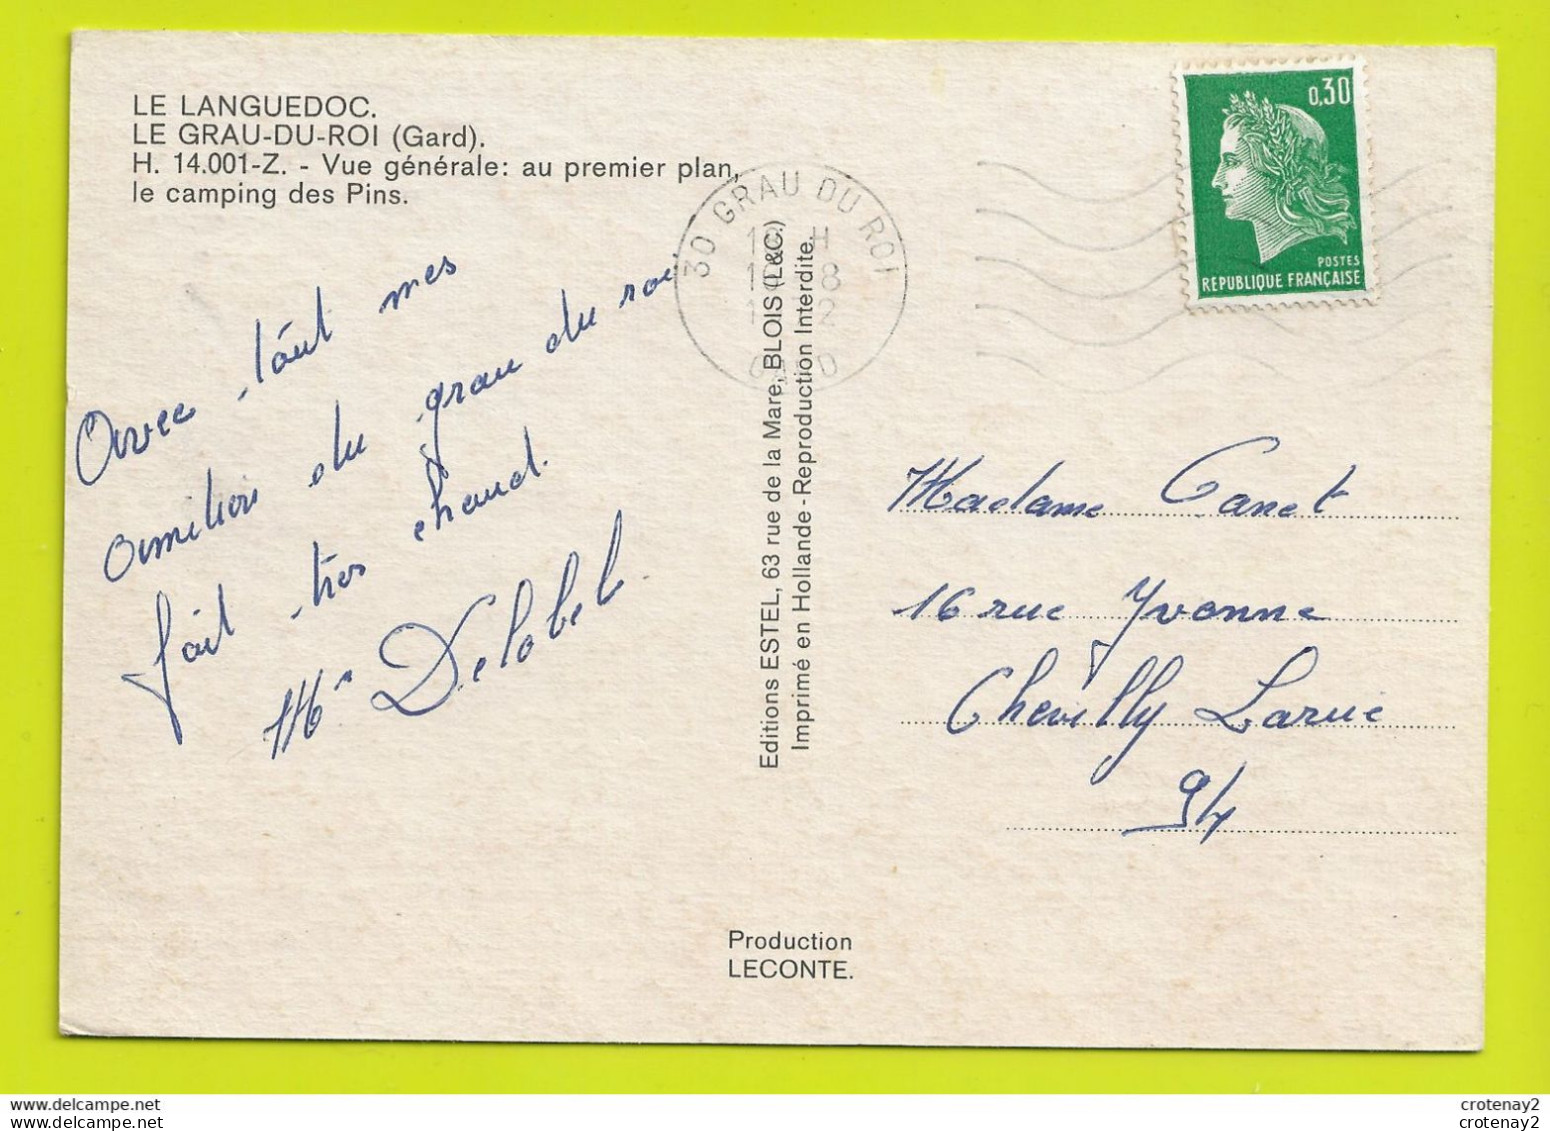 LE LANGUEDOC.
LE GRAU-DU-ROI (Gard).
H. 14.001-Z. - Vue générale: au premier plan,
le camping des Pins.
Avec tout mes
amitiés du grau du roi
fait très chaud.
Mr Delobel.
30 GRAU DU ROI
GARD
Editions ESTEL, 63 rue de la Mare, BLOIS (L&C.)
Imprimé en Hollande - Reproduction Interdite.
0,30
POSTES
REPUBLIQUE FRANÇAISE
Madame Canet
16 rue Yvonne
Chevilly Larue
94
Production
LECONTE.
delcampe.net
crotenay2
delcampe.net
crotenay2